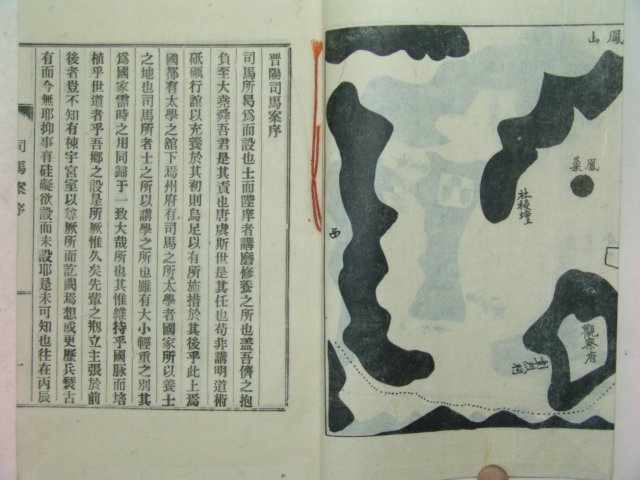 鳳山
鳳巢
社稷壇
觀察府
西
晋陽司馬案序
司馬所曷爲而設也士而陞庠者講磨修養之所也盖吾儕之抱
負至大堯舜吾君是其責也唐虞斯世是其任也苟非講明道術
砥礪行誼以充養於其初則烏足以有所施措於其後乎此上焉
國都有太學之舘下焉州府有司馬之所太學者國家所以養士
之地也司馬所者士之所以講學之所也雖有大小輕重之別其
爲國家需時之用同歸于一致大哉所也其惟維持乎國脉而培
植乎世道者乎吾鄕之設是所厥惟久矣先輩之剏立主張於前
後者豈不知有棟宇宮室以尊厥所而訖闕焉想或更歷兵燹古
有而今無耶抑事有硅礙欲設而未設耶是未可知也往在丙辰
司馬案序
一